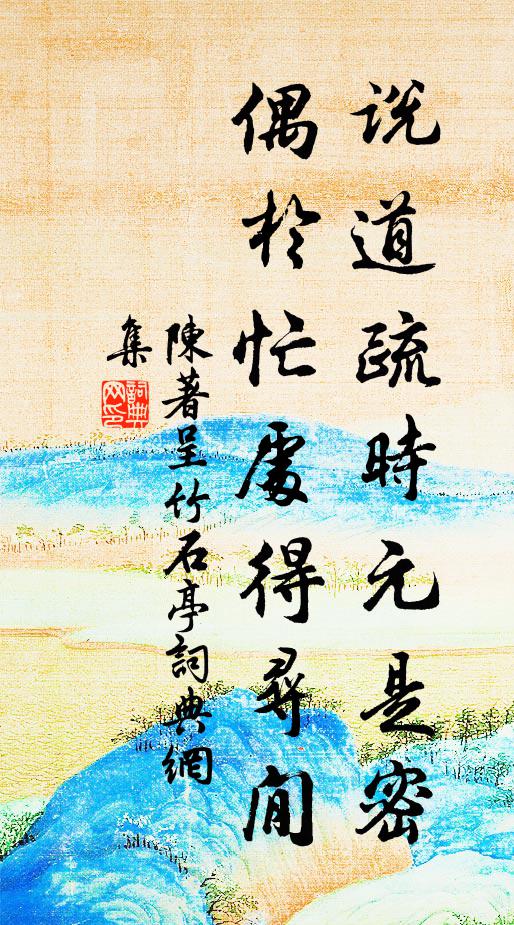 說道疏時元是密
偶於忙處得尋閒
陳著呈竹石亭詞典網
集
詞典網印